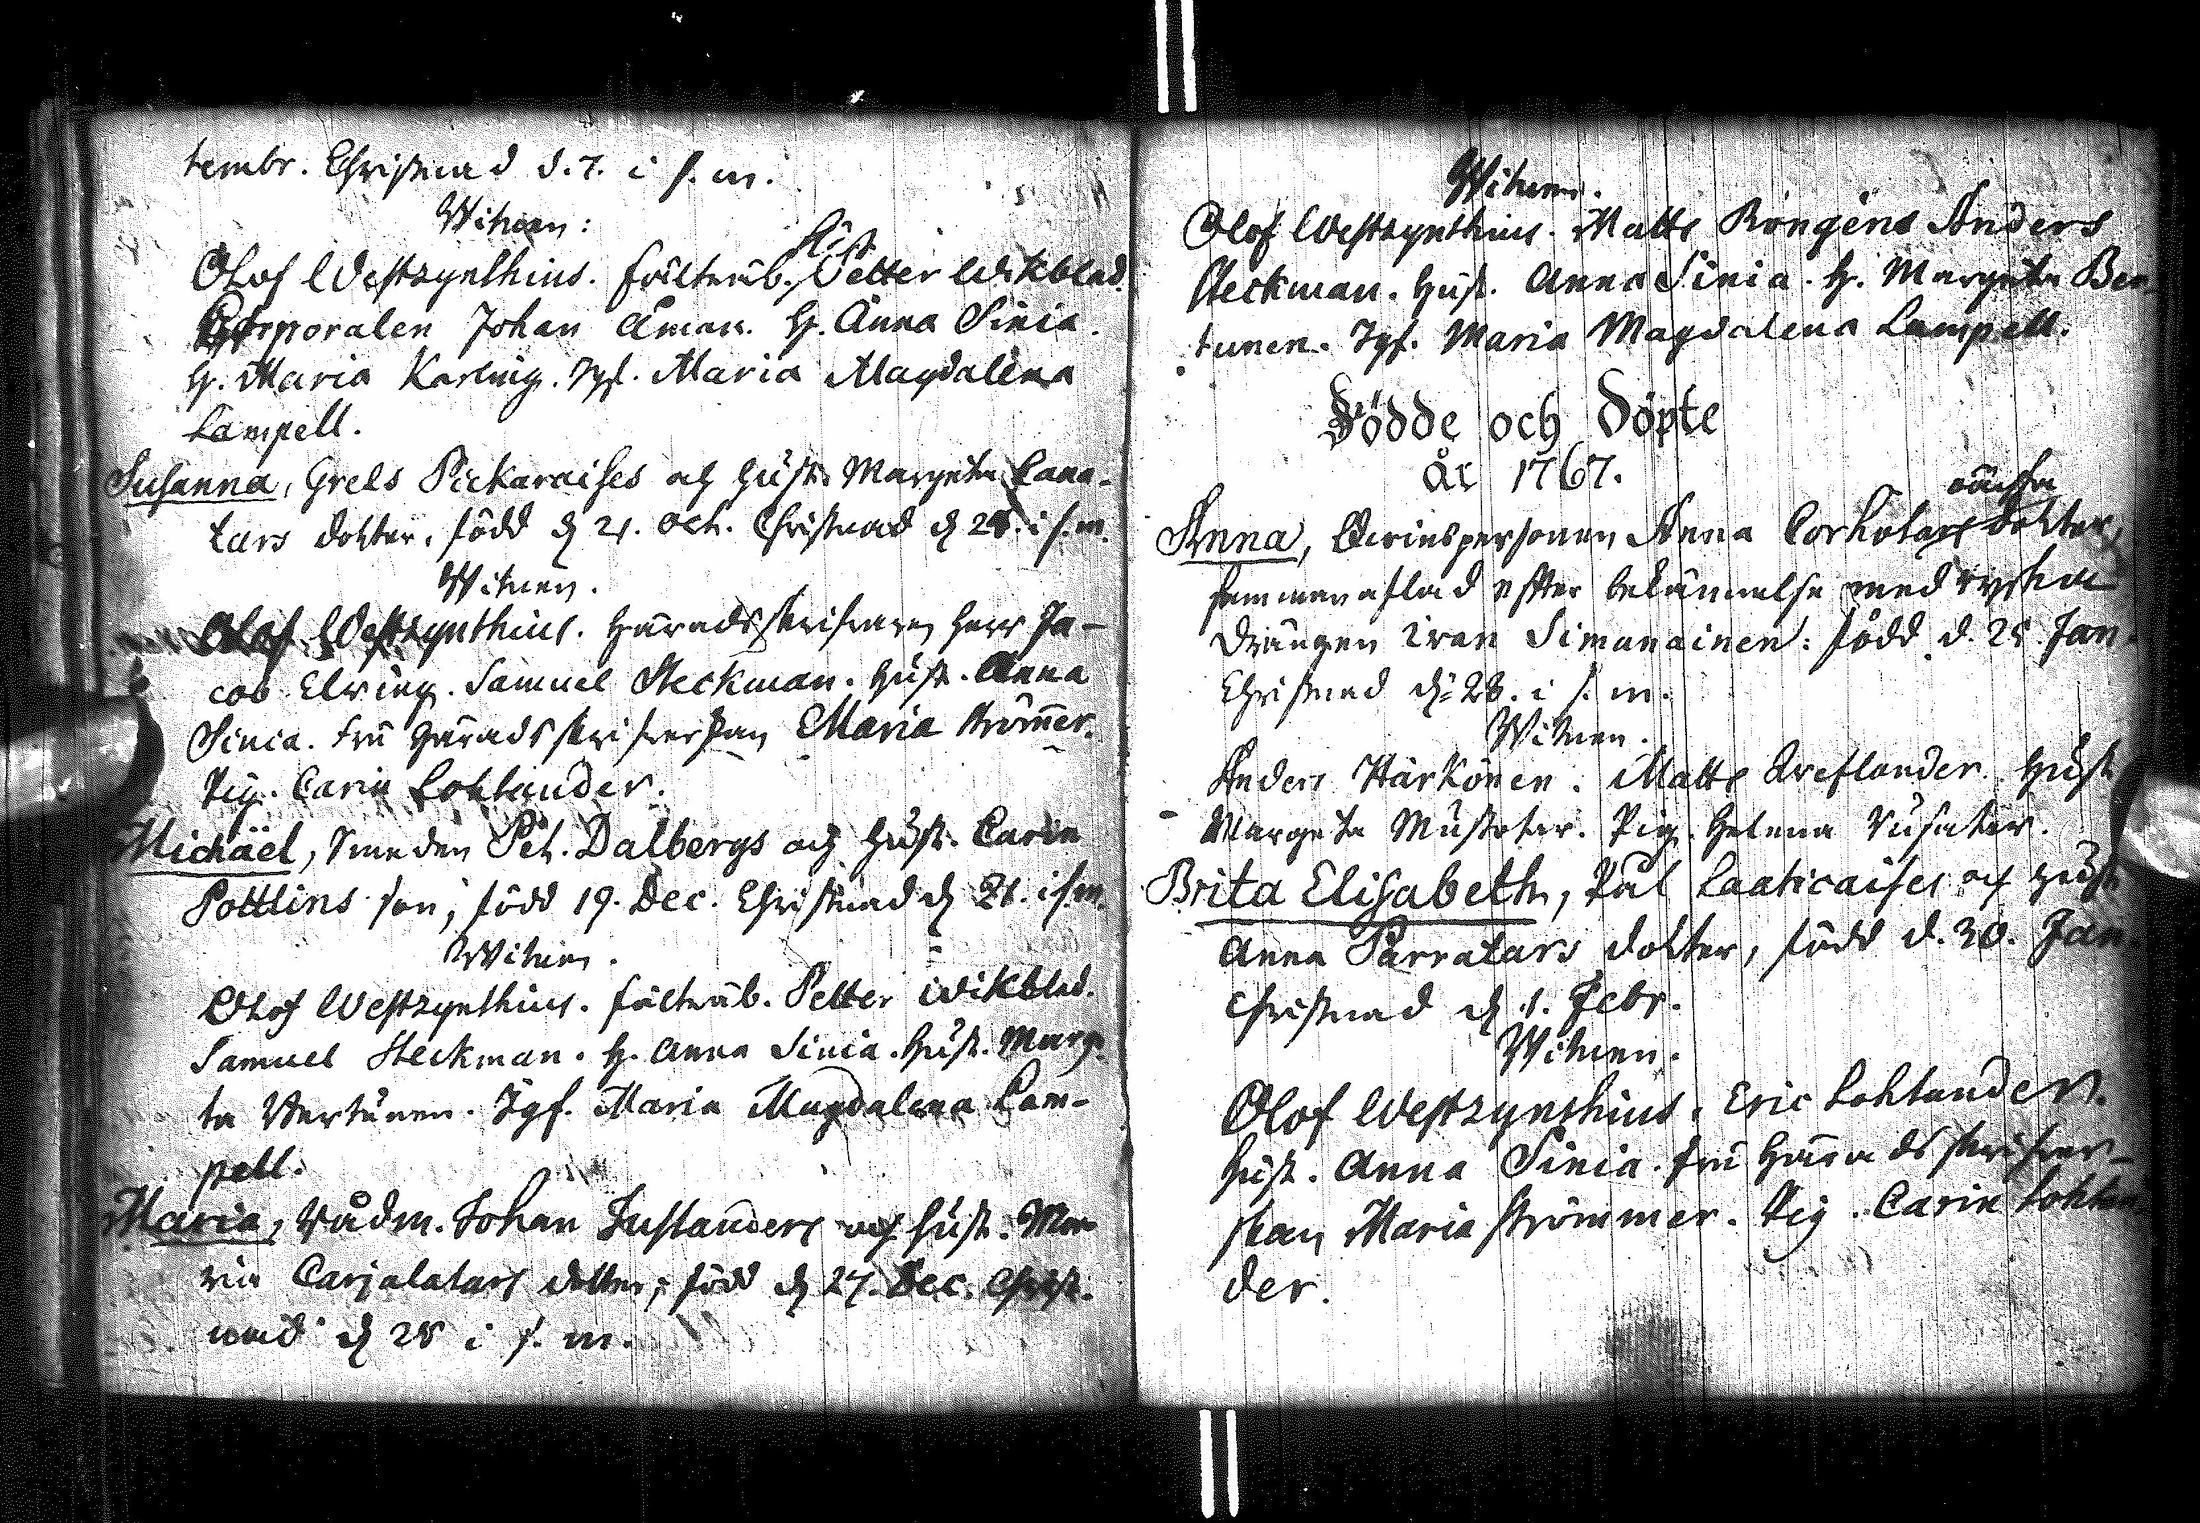 tembr. Christnad d. 7. i s. m.
Witnen:
Olof Westzynthius. fältväb. Petter Wikblad.
Corporalen Johan Åman. H. Anna Sinia.
H. Maria Karling. Jgf. Maria Magdalena
Lampell.
Susanna, Grels Pickaraises och hust. Margeta Cana-
tars dotter, född d 21. Oct. Christnad d 28. i s. m.
Witnen.
Olof Westzynthius. Häradsskrifvaren Herr Ja-
cob Elving. Samuel Steckman. Hust. Anna
Sinia. Fru Häradsskrifverskan Maria Strömer.
Pig. Carin Lohlander.
Michaël, Smeden Pet. Dalbergs och Hust. Carin
Pottlins son, född 19. Dec. Christnad d 21. i s. m.
Witnen.
Olof Westzynthius. fältväb. Petter Wikblad.
Samuel Steckman. H. Anna Sinia. Hust. Marge-
ta Vertunen. Jgf. Maria Magdalena Lam-
pell.
Maria, Rådm. Johan Justanders och hust. Ma-
ria Carjalatars dotter, född d 27. Dec. Christ-
nad d 28 i s. m.
Witnen.
Olof Westzynthius. Matts Röngéns Anders
Steckman. Hust. Anna Sinia. H. Margeta Ber-
tunen. Jgf. Maria Magdalena Lampell.
Födde och Döpte
år 1767.
Anna, Qvinspersonen Anna Corhotars oächta dotter,
sammanaflad efter bekännelse med ryska
Drängen Ivan Simanainen: född d. 25. Jan.
Christnad d. 28. i s. m.
Witnen.
Anders Härkönen. Matts Kreflander. Hust
Margeta Mustotar. Pig. Helena
Brita Elisabeth, Pål Laaticaises och hust
Anna Parratars dotter, född d. 30. Jan
Christnad d 1. Febr.
Witnen.
Olof Westzynthius. Eric Lohlander.
Hust. Anna Sinia. Fru Häradsskrifver-
skan Maria Strömmer. Pig. Carin Lohlan
der.